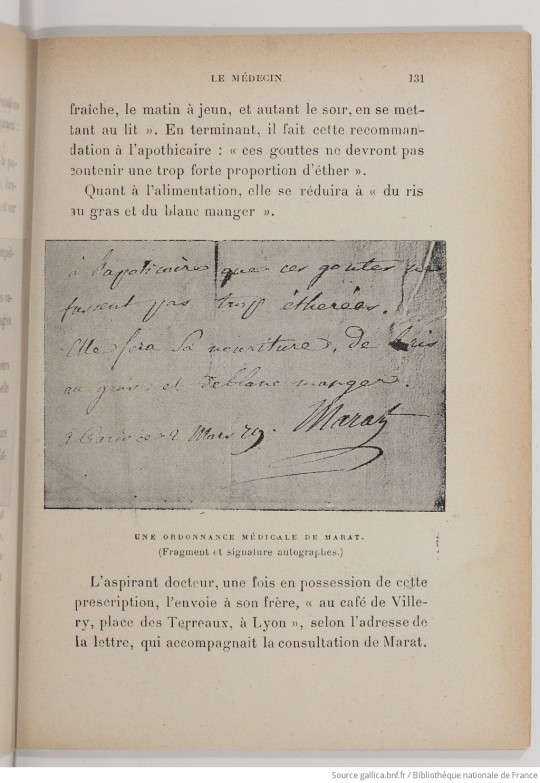 LE MÉDECIN 131
fraîche, le matin à jeun, et autant le soir, en se met-
tant au lit ». En terminant, il fait cette recomman-
dation à l'apothicaire : « ces gouttes ne devront pas
contenir une trop forte proportion d'éther ».
Quant à l'alimentation, elle se réduira à « du ris
au gras et du blanc manger ».
à l'apoticaire que ces goutes ne
fussent pas trop éthérées.
Elle fera sa nouriture, de Ris
au gras et de blanc manger.
à Paris ce 2 Mars 79. Marat
UNE ORDONNANCE MÉDICALE DE MARAT.
(Fragment et signature autographes.)
L'aspirant docteur, une fois en possession de cette
prescription, l'envoie à son frère, « au café de Ville-
ry, place des Terreaux, à Lyon », selon l'adresse de
la lettre, qui accompagnait la consultation de Marat.
Source gallica.bnf.fr / Bibliothèque nationale de France